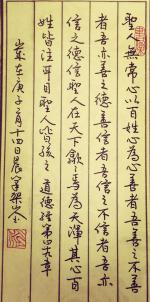 聖人無常心以百姓心為心善者吾善之不善
者吾亦善之德善信者吾信之不信者吾亦
信之德信聖人在天下歙歙焉為天下渾其心百
姓皆注耳目聖人皆孩之 道德經第四十九章
歲在庚子二月十四日晨